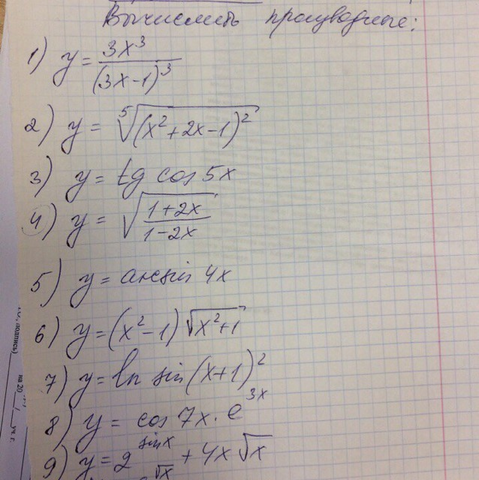 Вычислить производные:
1) y = 3x³/(3x-1)³
2) y = ⁵√(x²+2x-1)²
3) y = tg cos 5x
4) y = √((1+2x)/(1-2x))
5) y = arcsin 4x
6) y = (x²-1)√(x²+1)
7) y = ln sin(x+1)²
8) y = cos 7x · e^(3x)
9) y = 2^(sin x) + 4x√x
√x